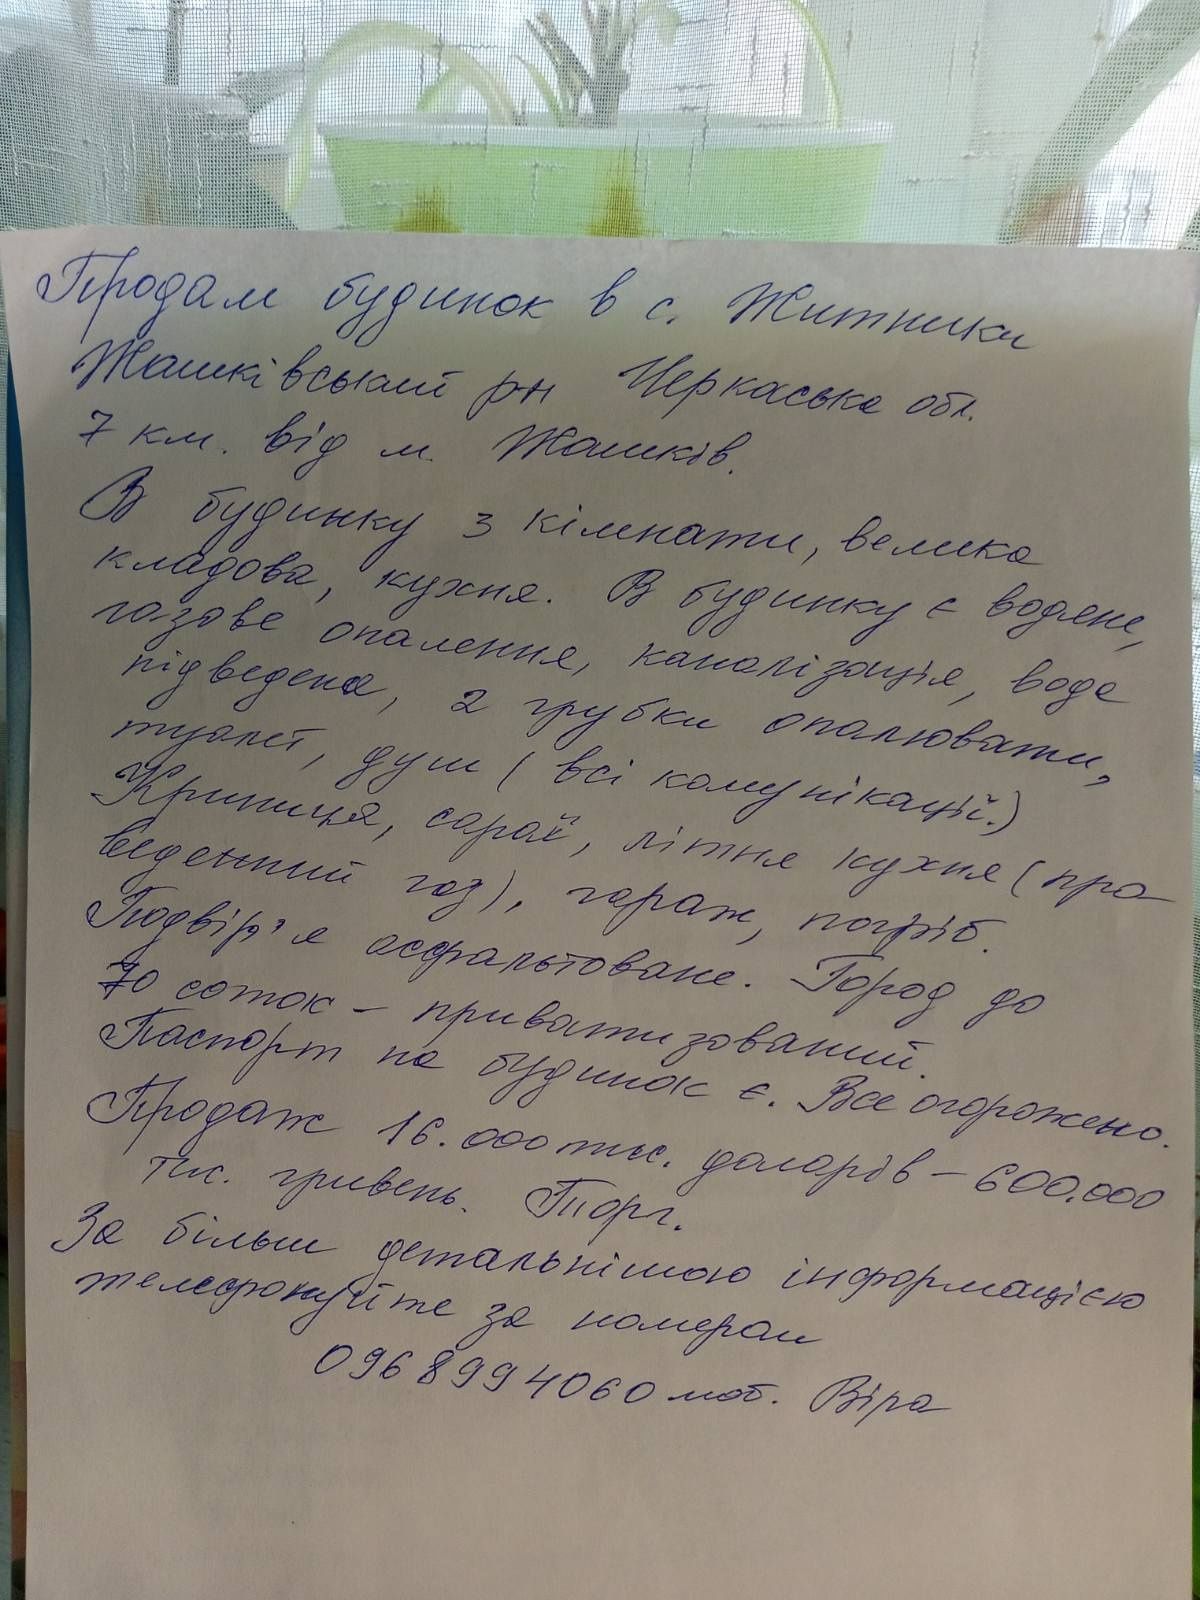 Продам будинок в с. Житники
Жашківський рн Черкаська обл.
7 км. від м. Жашків.
В будинку 3 кімнати, велика
кладова, кухня. В будинку є водяне,
газове опалення, каналізація, вода
підведена, 2 грубки опалювати,
туалет, душ (всі комунікації.)
Криниця, сарай, літня кухня (про
веденний газ), гараж, погріб.
Подвір'я асфальтоване. Город до
70 соток - приватизований.
Паспорт на будинок є. Все огорожено.
Продаж 16.000 тис. доларів - 600.000
тис. гривень. Торг.
За більш детальнішою інформацією
телефонуйте за номером
0968994060 моб. Віра